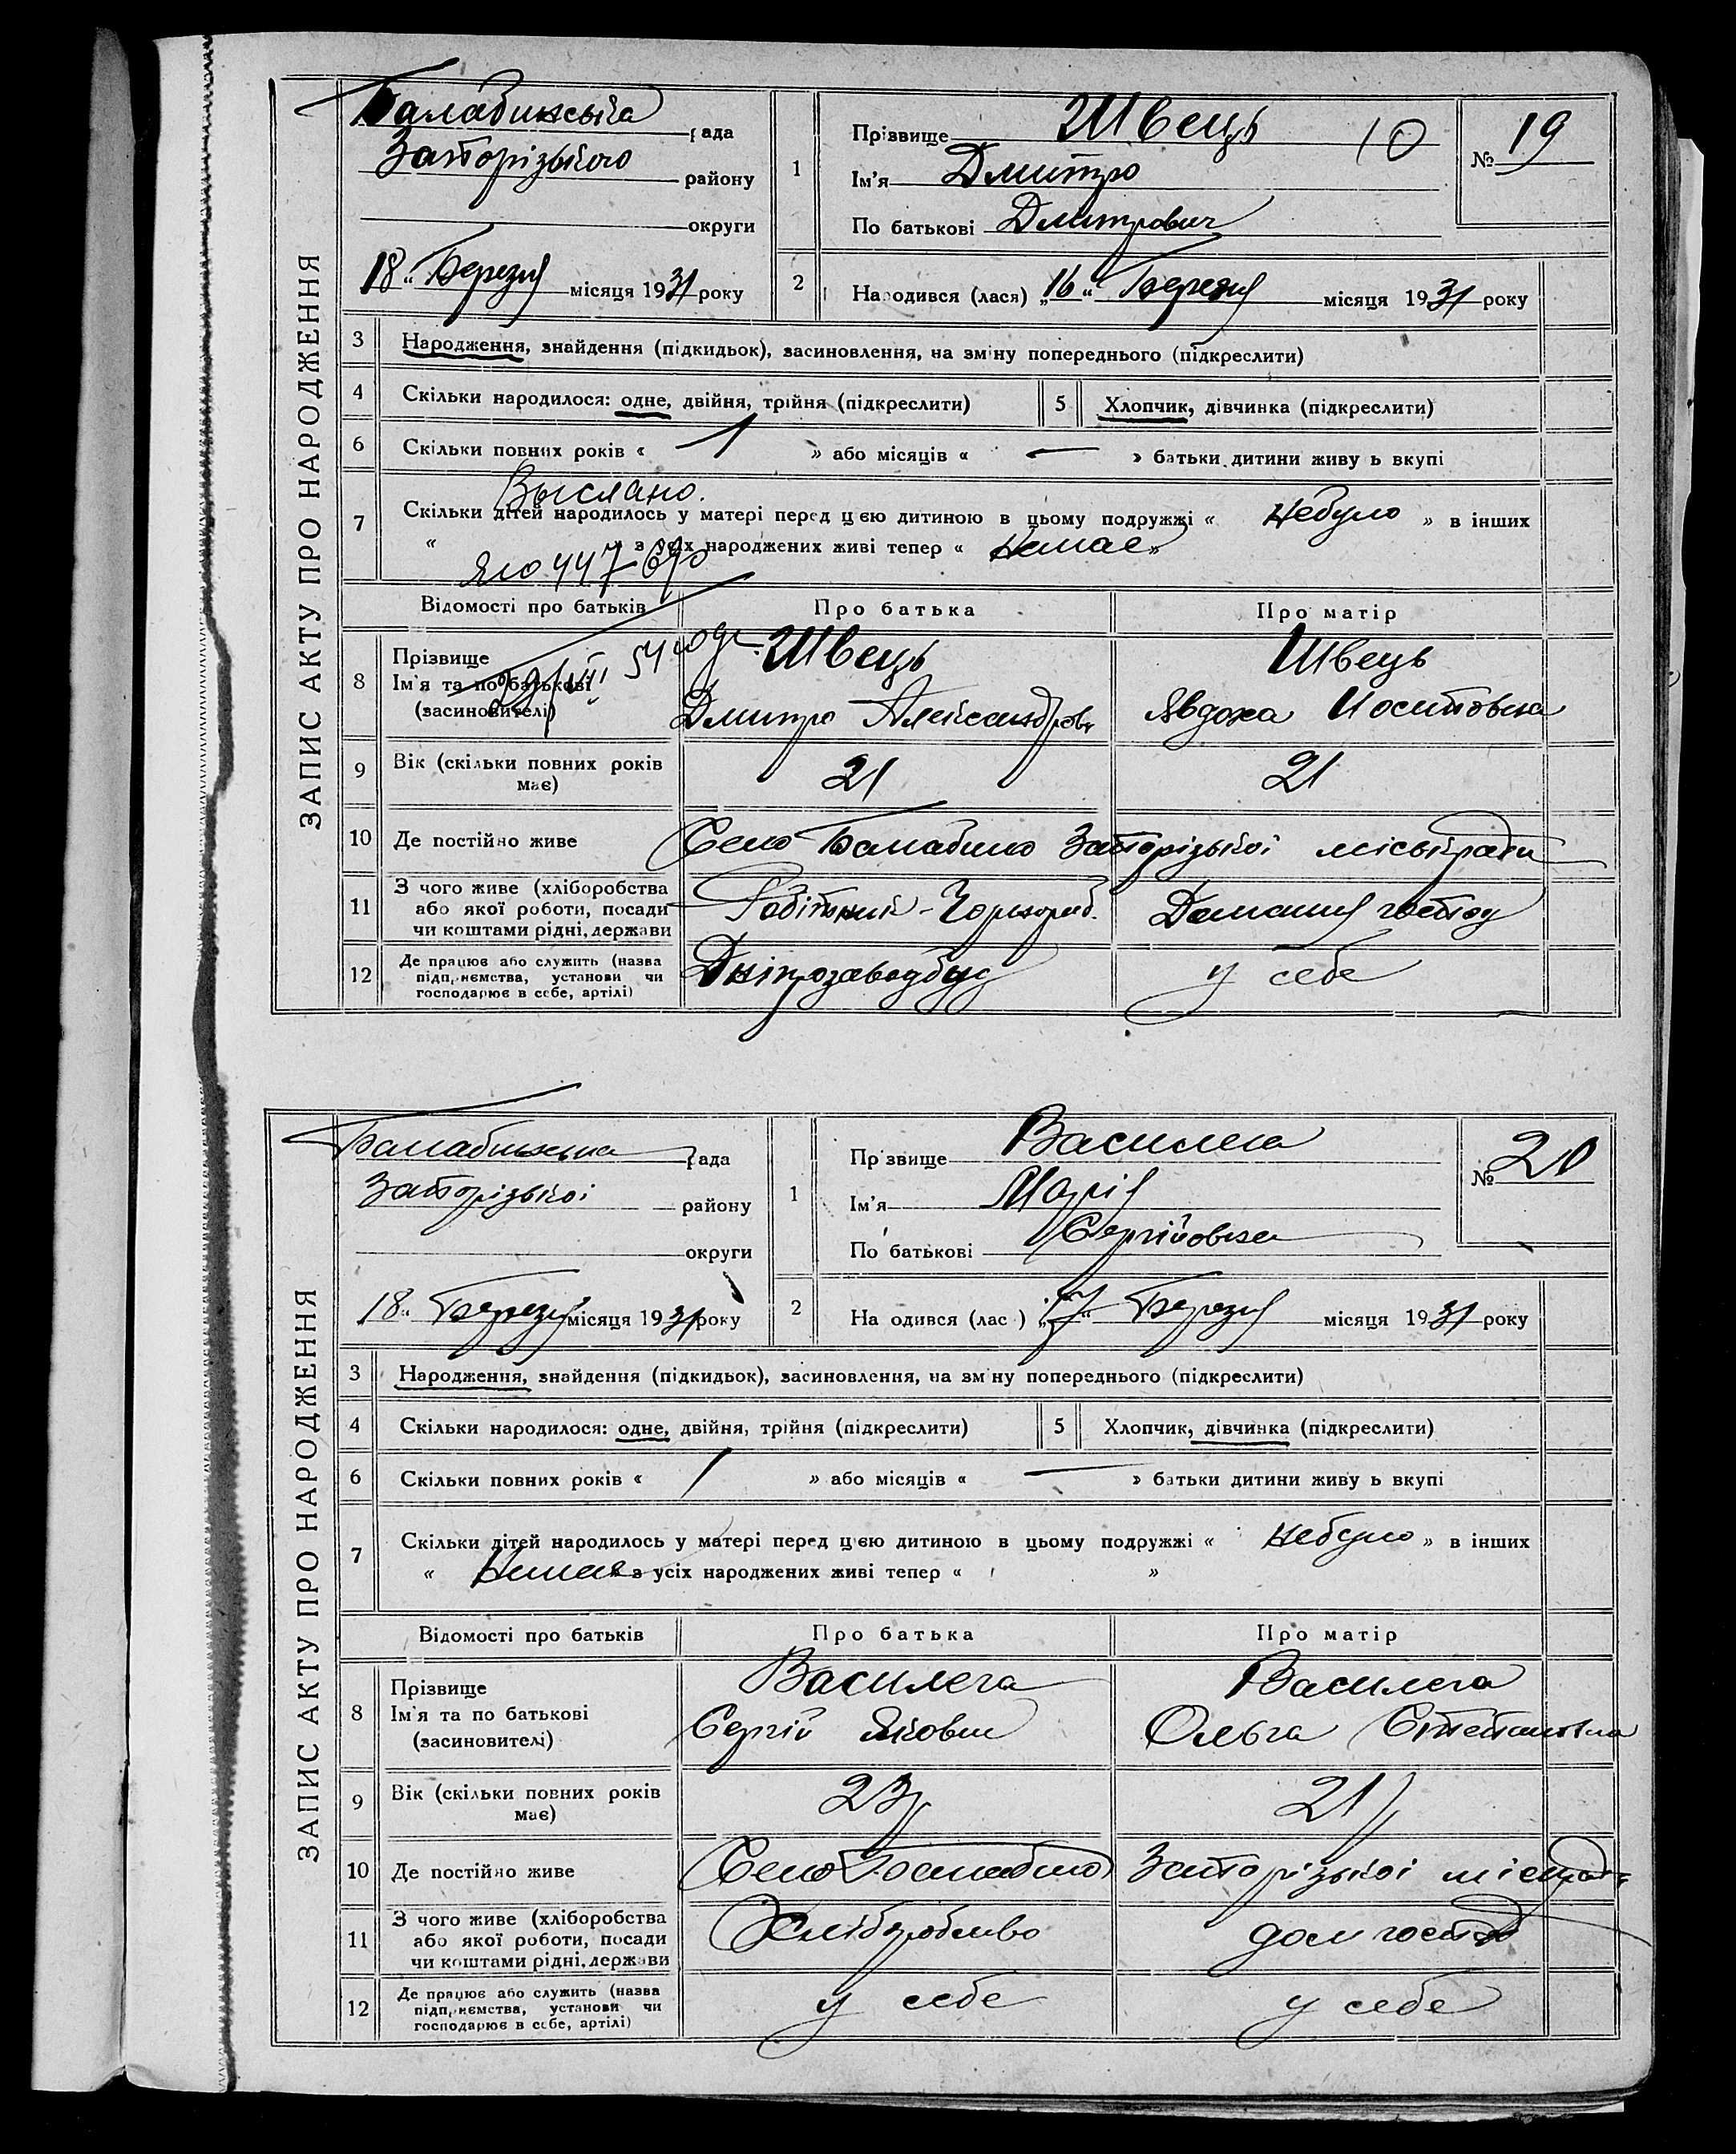 ЗАПИС АКТУ ПРО НАРОДЖЕННЯ
Балабинська рада
Запорізького району
округи
18 „ Березня місяця 1931 року
1
Прізвище Швець 10
Ім'я Дмитро
По батькові Дмитрович
№ 19
2 Народився (лася) „16“ Березня місяця 1931 року
3 Народження, знайдення (підкидьок), засиновлення, на зміну попереднього (підкреслити)
4 Скільки народилося: одне, двійня, трійня (підкреслити) 5 Хлопчик, дівчинка (підкреслити)
6 Скільки повних років « 1 » або місяців « — » батьки дитини живуть вкупі
Выслано.
7 Скільки дітей народилось у матері перед цією дитиною в цьому подружжі « Небуло » в інших
« » з усіх народжених живі тепер « Немає »
447690
Відомості про батьків Про батька Про матір
29/VIII 54 года
8 Прізвище Швець Швець
Ім'я та по батькові Дмитро Александров Явдоха Иосиповна
(засиновителі)
9 Вік (скільки повних років має) 21 21
10 Де постійно живе Село Балабино Запорізької міськради
11 З чого живе (хліборобства або якої роботи, посади чи коштами рідні, держави Робітник-Чорнороб. Домашня господ
12 Де працює або служить (назва підприємства, установи чи господарює в себе, артілі) Дніпрозаводбуд у себе
ЗАПИС АКТУ ПРО НАРОДЖЕННЯ
Балабинська рада
Запорізької району
округи
18 „ Березня місяця 1931 року
1
Прізвище Василега
Ім'я Марія
По батькові Сергійовна
№ 20
2 Народився (лася) „17“ Березня місяця 1931 року
3 Народження, знайдення (підкидьок), засиновлення, на зміну попереднього (підкреслити)
4 Скільки народилося: одне, двійня, трійня (підкреслити) 5 Хлопчик, дівчинка (підкреслити)
6 Скільки повних років « 1 » або місяців « — » батьки дитини живуть вкупі
7 Скільки дітей народилось у матері перед цією дитиною в цьому подружжі « Небуло » в інших
« Немає » з усіх народжених живі тепер « »
Відомості про батьків Про батька Про матір
8 Прізвище Василега Василега
Ім'я та по батькові Сергій Якович Ольга Степановна
(засиновителі)
9 Вік (скільки повних років має) 23 21
10 Де постійно живе Село Балабино Запорізької міськради
11 З чого живе (хліборобства або якої роботи, посади чи коштами рідні, держави Хліборобство дом господ
12 Де працює або служить (назва підприємства, установи чи господарює в себе, артілі) у себе у себе